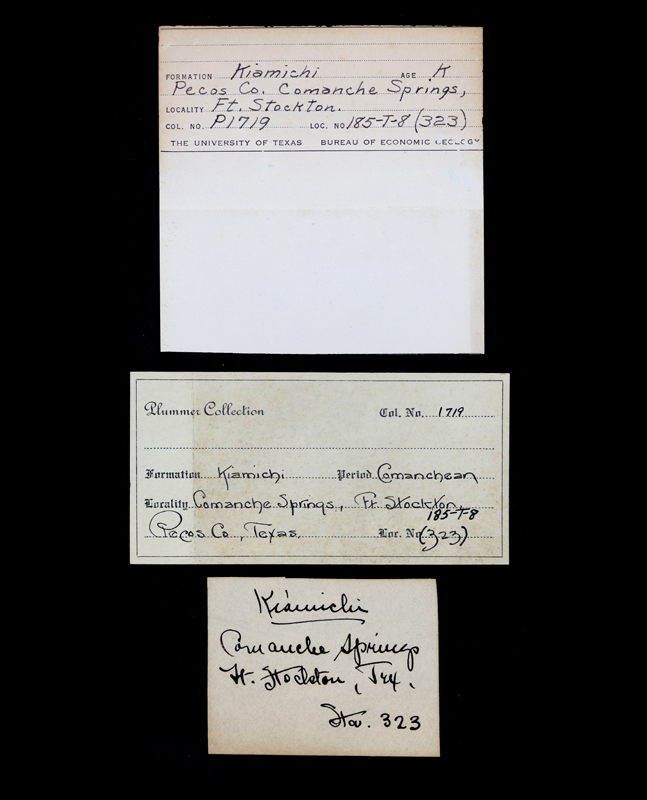 FORMATION Kiamichi AGE K
Pecos Co. Comanche Springs,
LOCALITY Ft. Stockton.
COL. NO. P1719 LOC. NO 185-T-8 (323)
THE UNIVERSITY OF TEXAS BUREAU OF ECONOMIC GEOLOGY
Plummer Collection Col. No. 1719
Formation Kiamichi Period Comanchean
Locality Comanche Springs, Ft Stockton,
185-T-8
Pecos Co., Texas. Loc. No (323)
Kiamichi
Comanche Springs
Ft. Stockton, Tex.
Sta. 323